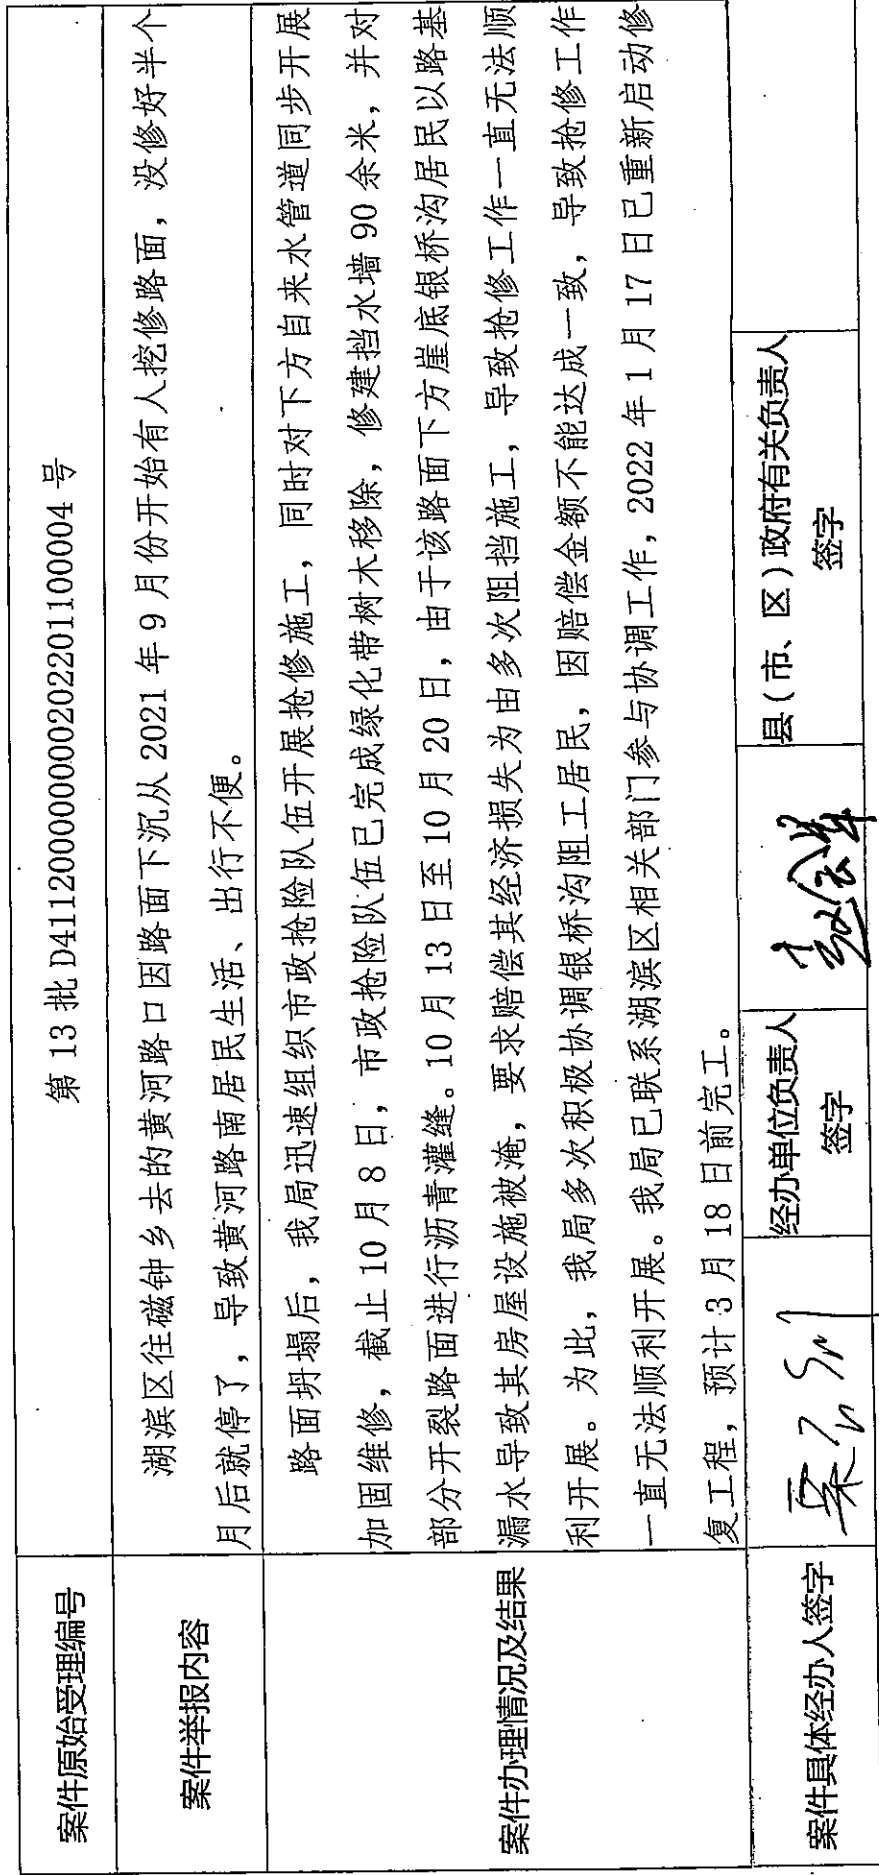 案件原始受理编号
第 13 批 D41120000000202201100004 号
案件举报内容
湖滨区往磁钟乡去的黄河路口因路面下沉从 2021 年 9 月份开始有人挖修路面，没修好半个
月后就停了，导致黄河路南居民生活、出行不便。
案件办理情况及结果
路面坍塌后，我局迅速组织市政抢险队伍开展抢修施工，同时对下方自来水管道同步开展
加固维修，截止 10 月 8 日，市政抢险队伍已完成绿化带树木移除，修建挡水墙 90 余米，并对
部分开裂路面进行沥青灌缝。10 月 13 日至 10 月 20 日，由于该路面下方崖底银桥沟居民以路基
漏水导致其房屋设施被淹，要求赔偿其经济损失为由多次阻挡施工，导致抢修工作一直无法顺
利开展。为此，我局多次积极协调银桥沟阻工居民，因赔偿金额不能达成一致，导致抢修工作
一直无法顺利开展。我局已联系湖滨区相关部门参与协调工作，2022 年 1 月 17 日已重新启动修
复工程，预计 3 月 18 日前完工。
案件具体经办人签字
经办单位负责人
签字
县（市、区）政府有关负责人
签字